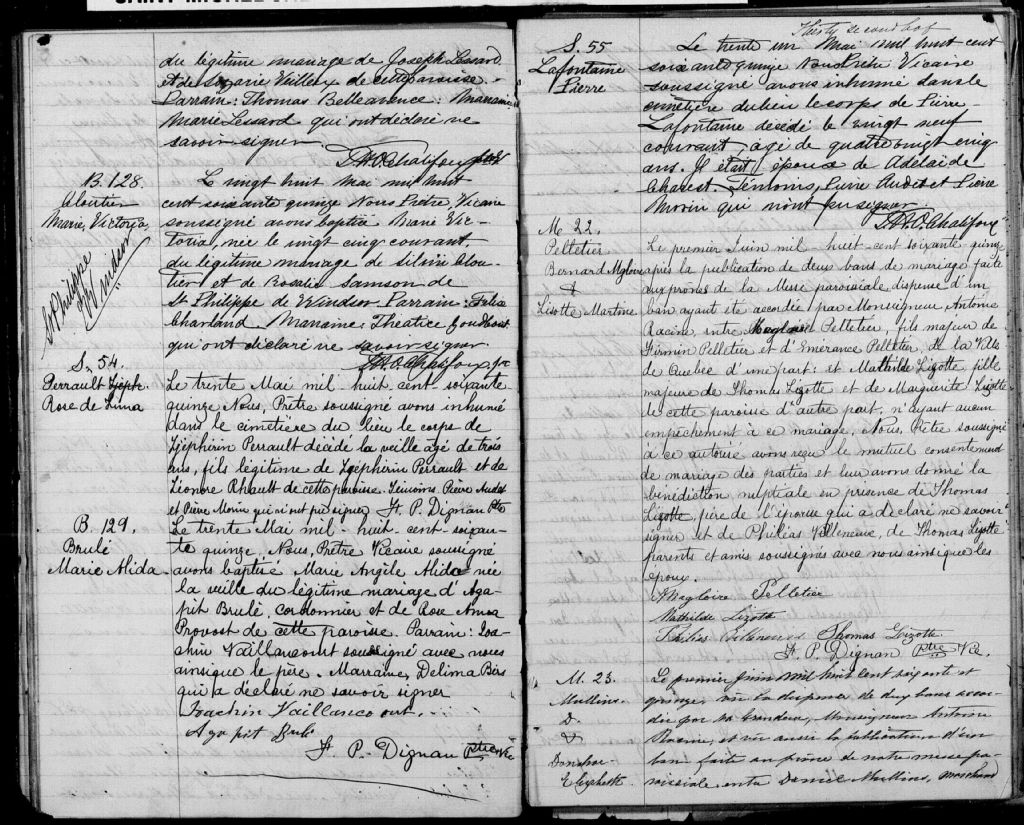 du légitime mariage de Joseph Lessard
et de Marie Veilleux de cette paroisse.
Parrain: Thomas Belleavence: Marraine
Marie Lessard qui ont déclaré ne
savoir signer
B. 128.
Cloutier
Marie, Victoria
St Philippe
Windsor
Le vingt huit Mai mil huit
cent soixante quinze Nous Prêtre Vicaire
soussigné avons baptisé Marie Vic-
toria, née le vingt cinq courant,
du légitime mariage de Silini Clou-
tier et de Rosalie Samson de
St Philippe de Windsor. Parrain: Felix
Charland. Marraine: 
qui ont déclaré ne savoir signer
S. 54.
Perrault Zéph.
Rose de Lima
Le trente Mai mil huit cent soixante
quinze Nous, Prêtre soussigné avons inhumé
dans le cimetière du lieu le corps de
Zéphirin Perrault décédé la veille âgé de trois
ans, fils légitime de Zéphirin Perrault et de
Léonore Rhault de cette paroisse. Témoins Pierre Audet
et Pierre Morin qui n'ont pu signer F. P. Dignan Ptre
B. 129.
Brulé
Marie Alida
Le trente Mai mil huit cent soixan-
te quinze, Nous, Prêtre Vicaire soussigné
avons baptisé Marie Angèle Alida née
la veille du légitime mariage d'Aga-
pit Brulé, cordonnier et de Rose Anna
Provost de cette paroisse. Parrain: Joa-
chin Vaillancourt soussigné avec nous
ainsique le père. Marraine, Delima
qui a déclaré ne savoir signer
Joachin Vaillancourt.
Agapit Brulé
F. P. Dignan Ptre Vic
Thirty second
S. 55
Lafontaine
Pierre
Le trente un Mai mil huit cent
soixante quinze Nous Prêtre Vicaire
soussigné avons inhumé dans le
cimetière du lieu le corps de Pierre
Lafontaine décédé le vingt neuf
courant, agé de quatre vingt cinq
ans. Il était époux de Adelaide
Charest. Témoins, Pierre Audet et Pierre
Morin qui n'ont pu signer
M 22
Pelletier
Bernard Mgloire
&
Lizotte Martine
Le premier Juin mil huit-cent soixante quinze
après la publication de deux bans de mariage faite
aux prones de la Messe paroissiale dispense d'un
ban ayant été accordée par Monseigneur Antoine
Racine entre Magloire Pelletier, fils majeur de
Firmin Pelletier et d'Emerance Pelletier, de la Ville
de Quebec d'une part: et Mathilde Lizotte fille
majeure de Thomas Lizotte et de Marguerite Lizotte
de cette paroisse d'autre part, n'ayant aucun
empêchement à ce mariage, Nous, Prêtre soussigné
à ce autorisé avons reçu le mutuel consentement
de mariage des parties et leur avons donné la
bénédiction nuptiale en présence de Thomas
Lizotte, père de l'épouse qui a déclaré ne savoir
signer et de Philéas Villeneuve, de Thomas Lizotte
parents et amis soussignés avec nous ainsique les
époux.
Magloire Pelletier
Mathilde Lizott
Thomas Lizotte
F. P. Dignan Ptre Vic.
M. 23.
Mullins
D.
&
Donahoe
Elizabeth
Le premier juin mil huit cent soixante et
quinze, vu la dispense de deux bans accor-
dée par sa grandeur, Monseigneur Antoine
Racine, et vu aussi la publication d'un
ban faite au prône de notre messe pa-
roissiale entre Daniel Mullins, marchand